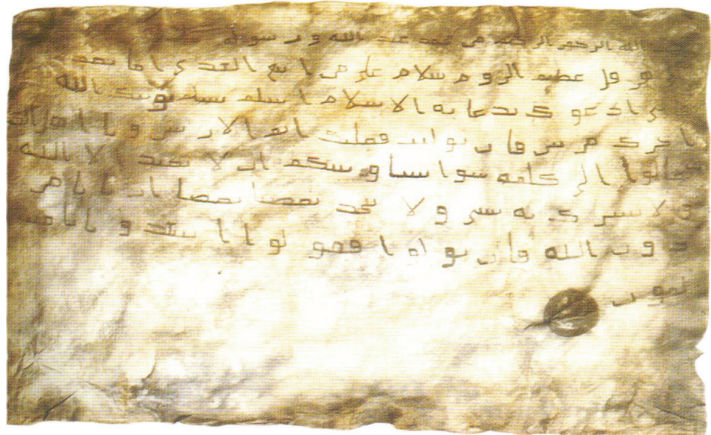 الله الرحمن الرحيم من محمد عبد الله و رسوله
هرقل عظيم الروم سلام على من اتبع الهدى اما بعد
ادعوك بدعاية الاسلام اسلم تسلم يوتك الله
اجرك مرتين فان توليت فعليك اثم الاريسين و يا اهل
تعالوا الى كلمة سوا بيننا و بينكم ان لا نعبد الا الله
و لا نشرك به شيا و لا يتخذ بعضنا بعضا اربابا من
دون الله فان تولوا فقولوا اشهدوا بانا مسل
مون